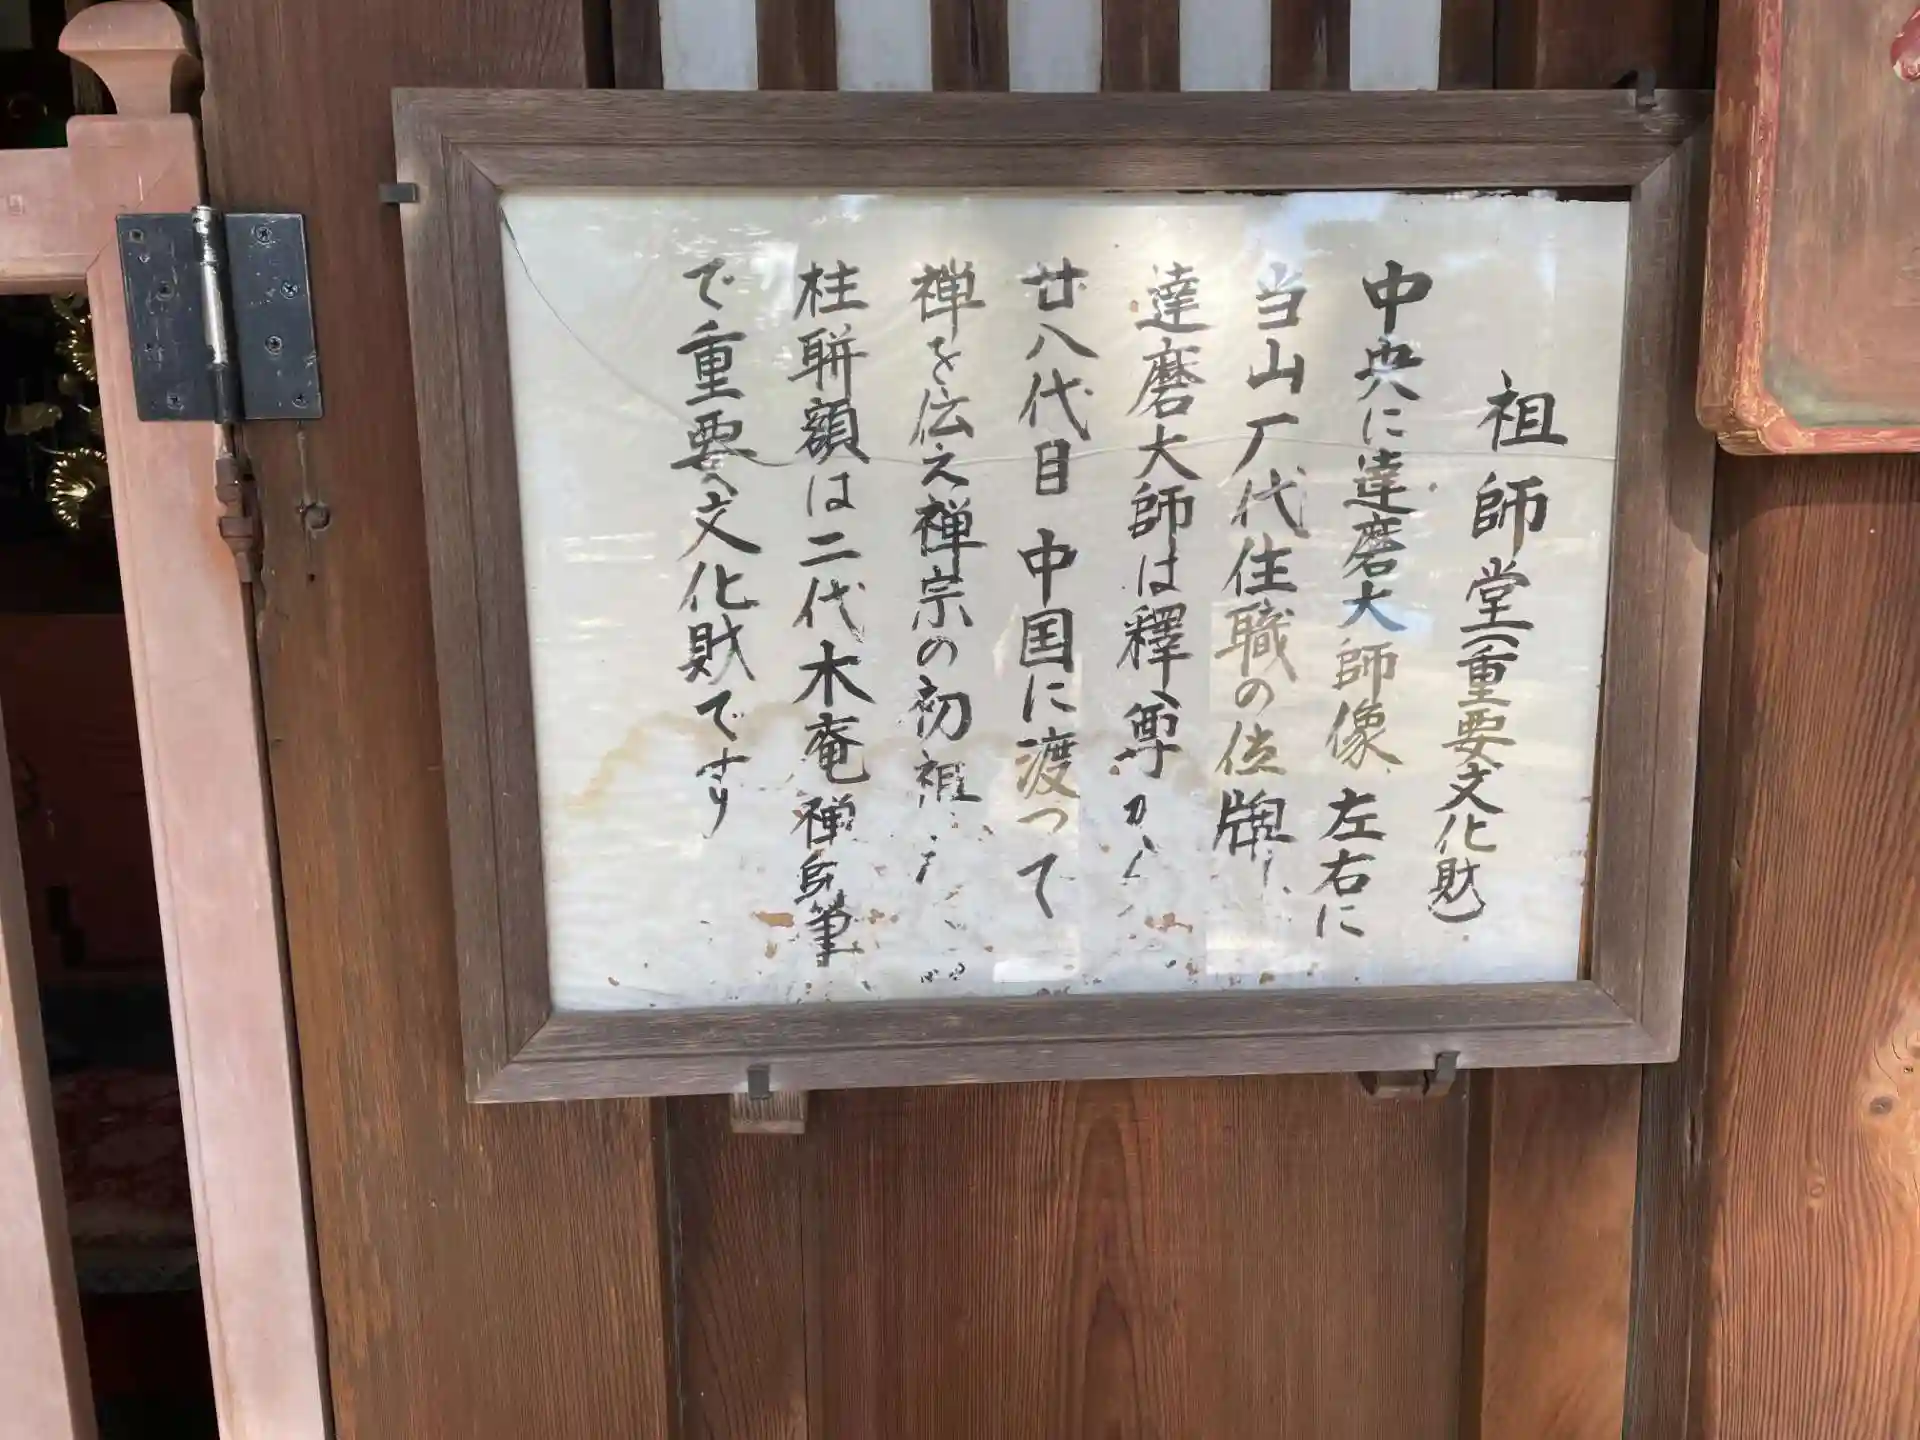 祖師堂(重要文化財)
中央に達磨大師像 左右に
当山厂代住職の位牌
達磨大師は釋尊から
廿八代目 中国に渡って
禅を伝え禅宗の初祖
柱聯額は二代木庵禅師筆
で重要文化財です